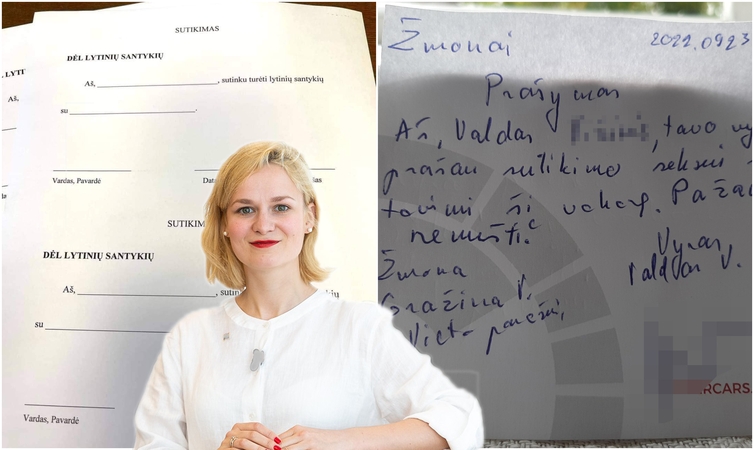 SUTIKIMAS
DĖL LYTINIŲ SANTYKIŲ
Aš, ____________, sutinku turėti lytinių santykių
su ____________.
Vardas, Pavardė
SUTIKIM
DĖL LYTINIŲ SANTYKIŲ
Aš, ____________, sutin
su ____________
Vardas, Pavardė
LYTI
Aš,
Žmonai 2022.09.23
Prašymas
Aš, Valdas , tavo vy
prašau sutikimo seksui
tavimi šį vakarą. Paža
nemušti.
Vyras
Valdas V.
Žmona
Gražina V.
Vieta
RCARS.